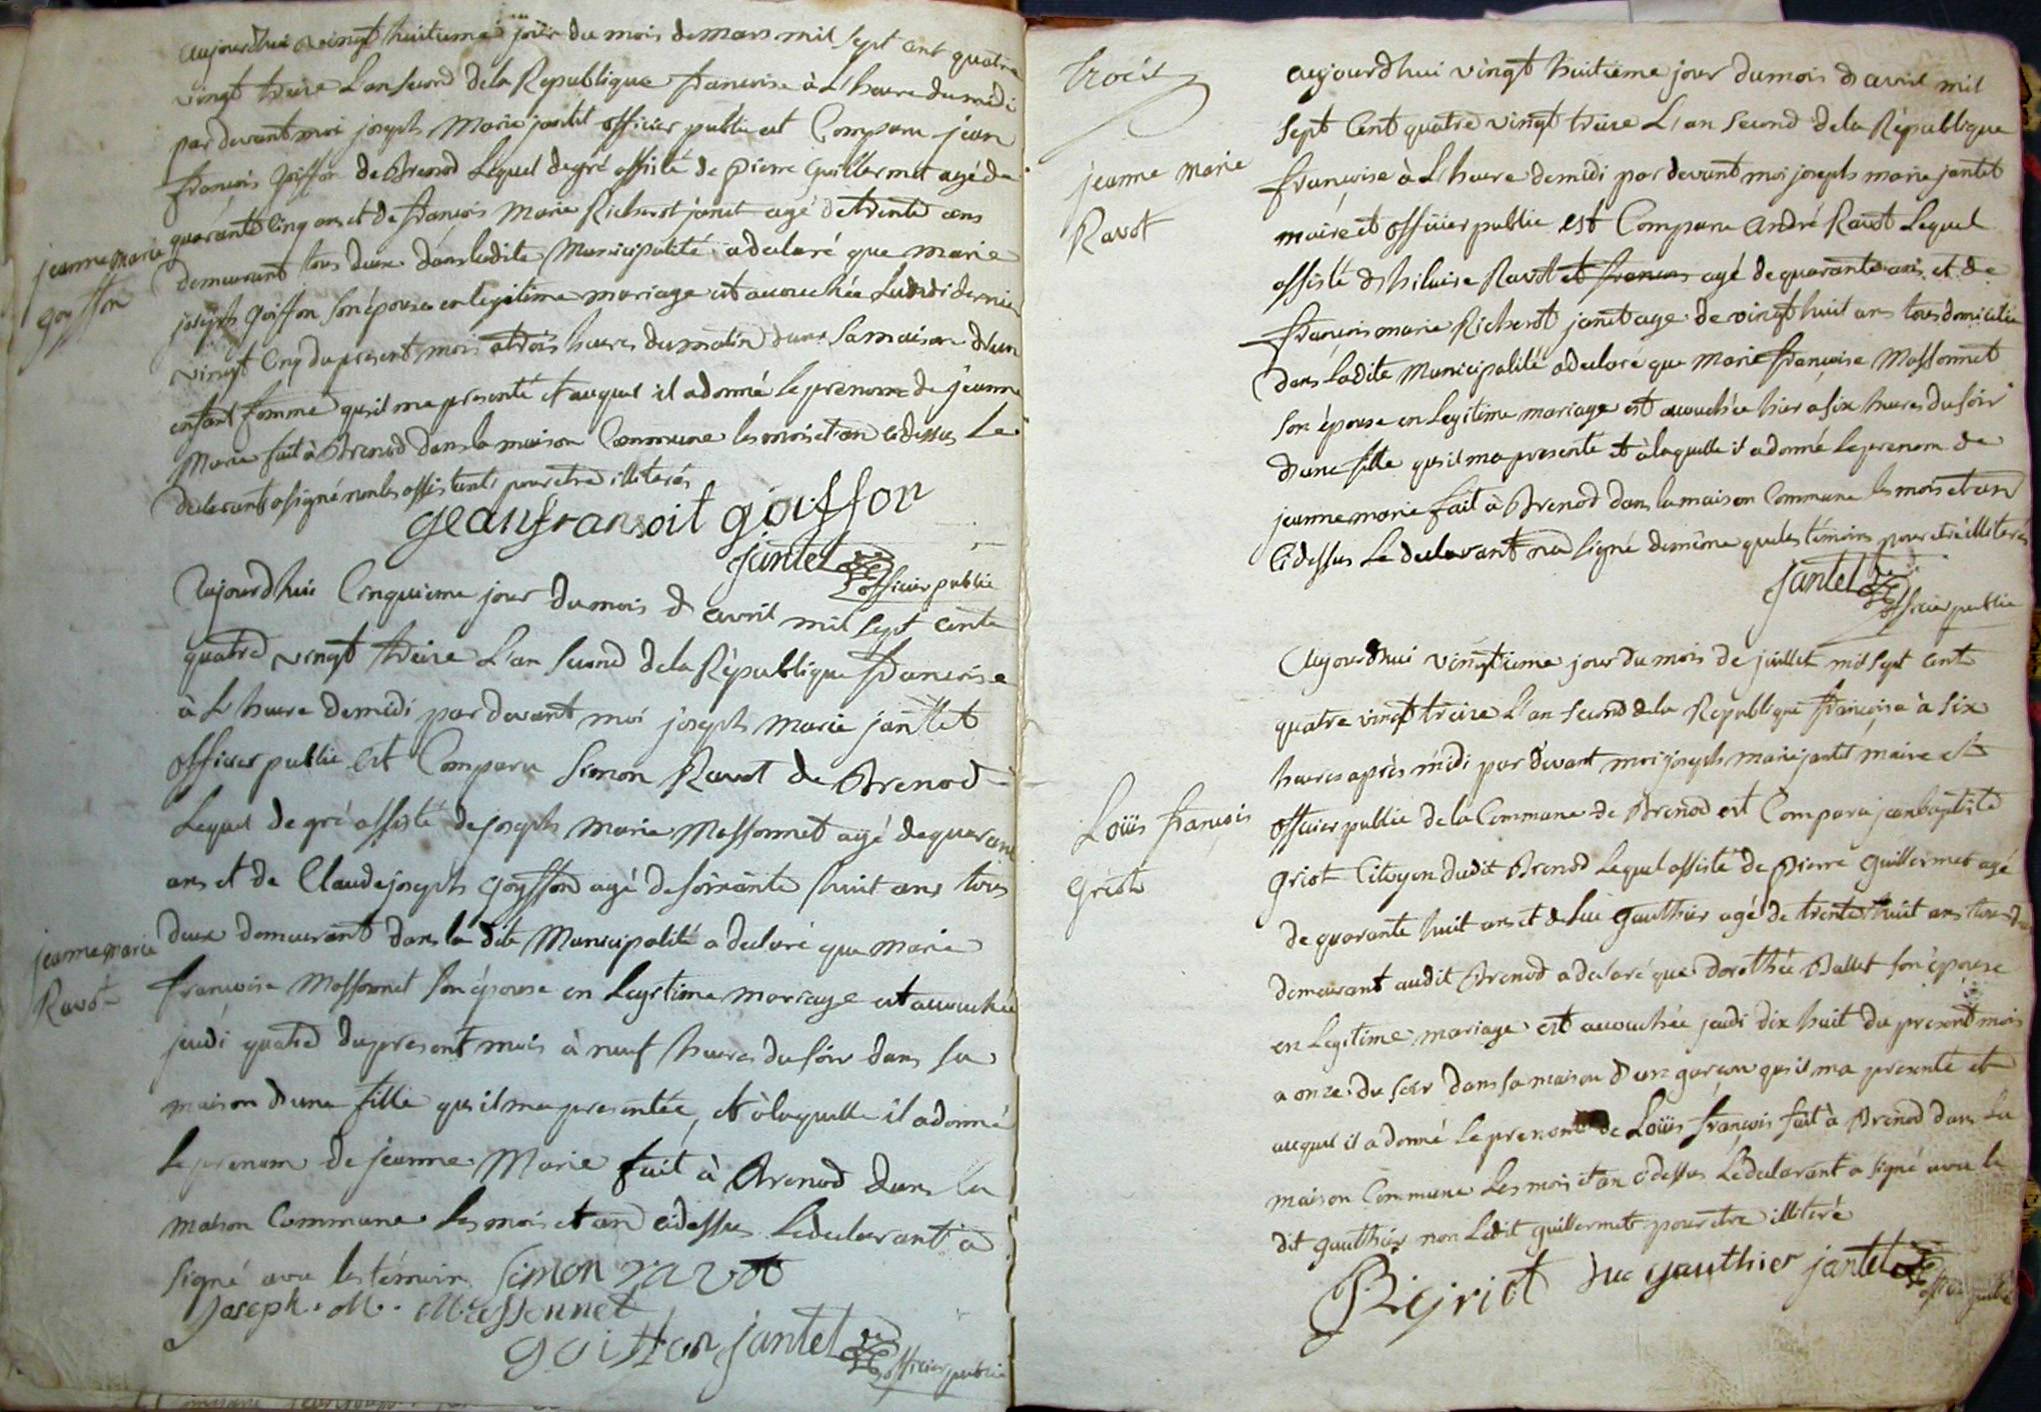 aujourdhui vingt huitieme jour du mois de mars mil sept cent quatre
vingt treize L'an second de la Republique francoise à L'heure du midi
par devant moi joseph Marie jantet officier public est Comparu jean
françois Goiffon de Brenod Lequel de gré assisté de pierre Guillermet agé de
quarante cinq ans et de françois Marie Richerot janet agé de trente ans
demeurant tous deux dans ladite Municipalité a declaré que marie
joseph Goiffon son épouse en legitime mariage est accouchée Lundi dernier
vingt cinq du present mois à trois heures du matin dans sa maison d'un
enfant femme qu'il ma presenté et auquel il a donné le prenom de jeanne
Marie fait à Brenod dans la maison Commune les mois et an cidessus Le
declarant a signé non les assistants pour etre illiterés
jeanne marie
goiffon
geanfransoit goiffon
jantet officier public
Aujourdhui Cinquieme jour du mois d avril mil sept cents
quatre vingt treize L'an second de la République francoise
à L'heure de midi par devant moi joseph marie jantet
officier public est Comparu Simon Ravot de Brenod
Lequel de gré assisté de joseph marie Massonnet agé de quarante
ans et de Claude joseph Goyffon agé de soixante huit ans tous
deux demeurant dans la dite Municipalité a declaré que marie
francoise Massonnet son épouse en Legitime mariage est accouchée
jeudi quatre du present mois à neuf heures du soir dans sa
maison d'une fille qu'il ma presentée, et à laquelle il a donné
Le prenom de jeanne Marie fait à Brenod dans la
maison Commune les mois et an cidessus Le declarant a
signé avec les témoins Simon ravot
jeanne marie
Ravot
Joseph. M. Massonnet
goiffon jantet officier public
jeanne marie
Ravot
aujourdhui vingt huitieme jour du mois d avril mil
sept Cent quatre vingt treize L'an second de la République
françoise à L'heure de midi par devant moi joseph marie jantet
maire et officier public est Comparu andré Ravot Lequel
assisté d'hilaire Ravot et francois agé de quarante ans et de
françois marie Richerot janet age de vingt huit ans tous domicilie
dans ladite Municipalité a declaré que marie françoise Massonnet
son épouse en legitime mariage est accouchée hier a six heures du soir
d'une fille qu'il ma presenté et à laquelle il a donné le prenom de
jeanne marie fait à Brenod dans la maison Commune les mois et an
cidessus Le declarant na signé de même que les témoins pour etre illiterés
jantet officier public
Aujourdhui vingtieme jour du mois de juillet mil sept cent
quatre vingt treize L'an second de la Republique françoise à six
heures après midi par devant moi joseph marie jantet maire et
officier public de la Commune de Brenod est Comparu jean baptiste
griot Citoyen dudit Brenod Lequel assisté de Pierre Guillermet agé
de quarante huit ans et de Luc gauthier agé de trente huit ans tous deux
demeurant audit Brenod a declaré que dorothée Ballet son épouse
en legitime mariage est accouchée jeudi dix huit du present mois
a onze du soir dans sa maison d'un garçon qu'il ma presenté et
auquel il a donné le prenom de Loüis françois fait à Brenod dans la
maison Commune les mois et an cidessus Le declarant a signé avec le
dit gauthier non Ledit guillermet pour etre illiteré
Loüis françois
griot
B griot Luc gauthier jantet officier public